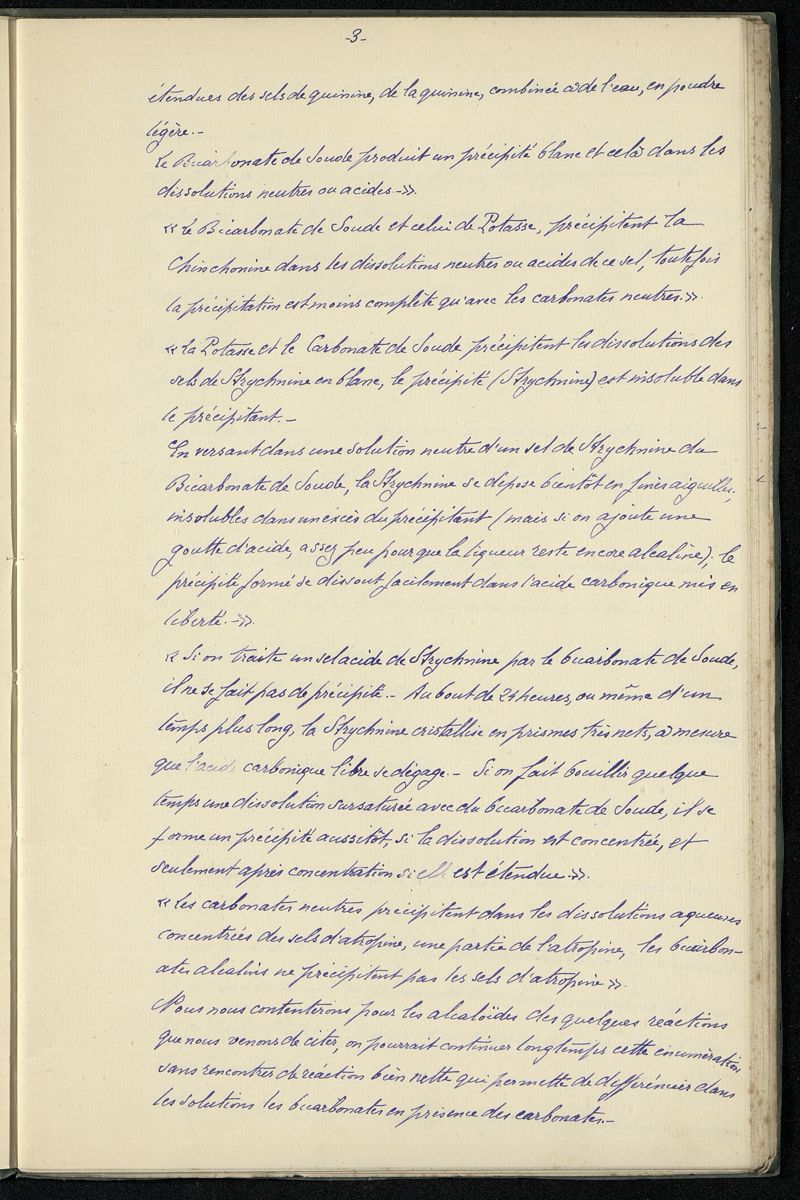 -3-
étendues des sels de quinine, de la quinine, combinée à de l'eau, en poudre
légère.-
Le Bicarbonate de Soude produit un précipité blanc et cela dans les
dissolutions neutres ou acides.-».
« Le Bicarbonate de Soude et celui de Potasse, précipitent la
Chinchonine dans les dissolutions neutres ou acides de ce sel, toutefois
la précipitation est moins complète qu'avec les carbonates neutres.».
« La Potasse et le Carbonate de Soude précipitent les dissolutions des
sels de Strychnine en blanc, le précipité (Strychnine) est insoluble dans
le précipitant.-
En versant dans une solution neutre d'un sel de Strychnine du
Bicarbonate de Soude, la Strychnine se dépose bientôt en fines aiguilles,
insolubles dans un éxcès du précipitant (mais si on ajoute une
goutte d'acide, assez peu pour que la liqueur reste encore alcaline); le
précipité formé se dissout facilement dans l'acide carbonique mis en
liberté.-».
« Si on traite un sel acide de Strychnine par le bicarbonate de Soude,
il ne se fait pas de précipité.- Au bout de 24 heures, ou même d'un
temps plus long, la Strychnine cristallise en prismes très nets, à mesure
que l'acide carbonique libre se dégage.- Si on fait bouillir quelque
temps une dissolution sursaturée avec du bicarbonate de Soude, il se
forme un précipité aussitôt, si la dissolution est concentrée, et
seulement après concentration si elle est étendue.».
« Les carbonates neutres précipitent dans les dissolutions aqueuses
concentrées des sels d'atropine, une partie de l'atropine, les bicarbon-
ates alcalins ne précipitent pas les sels d'atropine ».
Nous nous contenterons pour les alcaloïdes des quelques réactions
que nous venons de citer, on pourrait continuer longtemps cette énumération
sans rencontrer de réaction bien nette qui permette de différencier dans
les solutions les bicarbonates en présence des carbonates.-